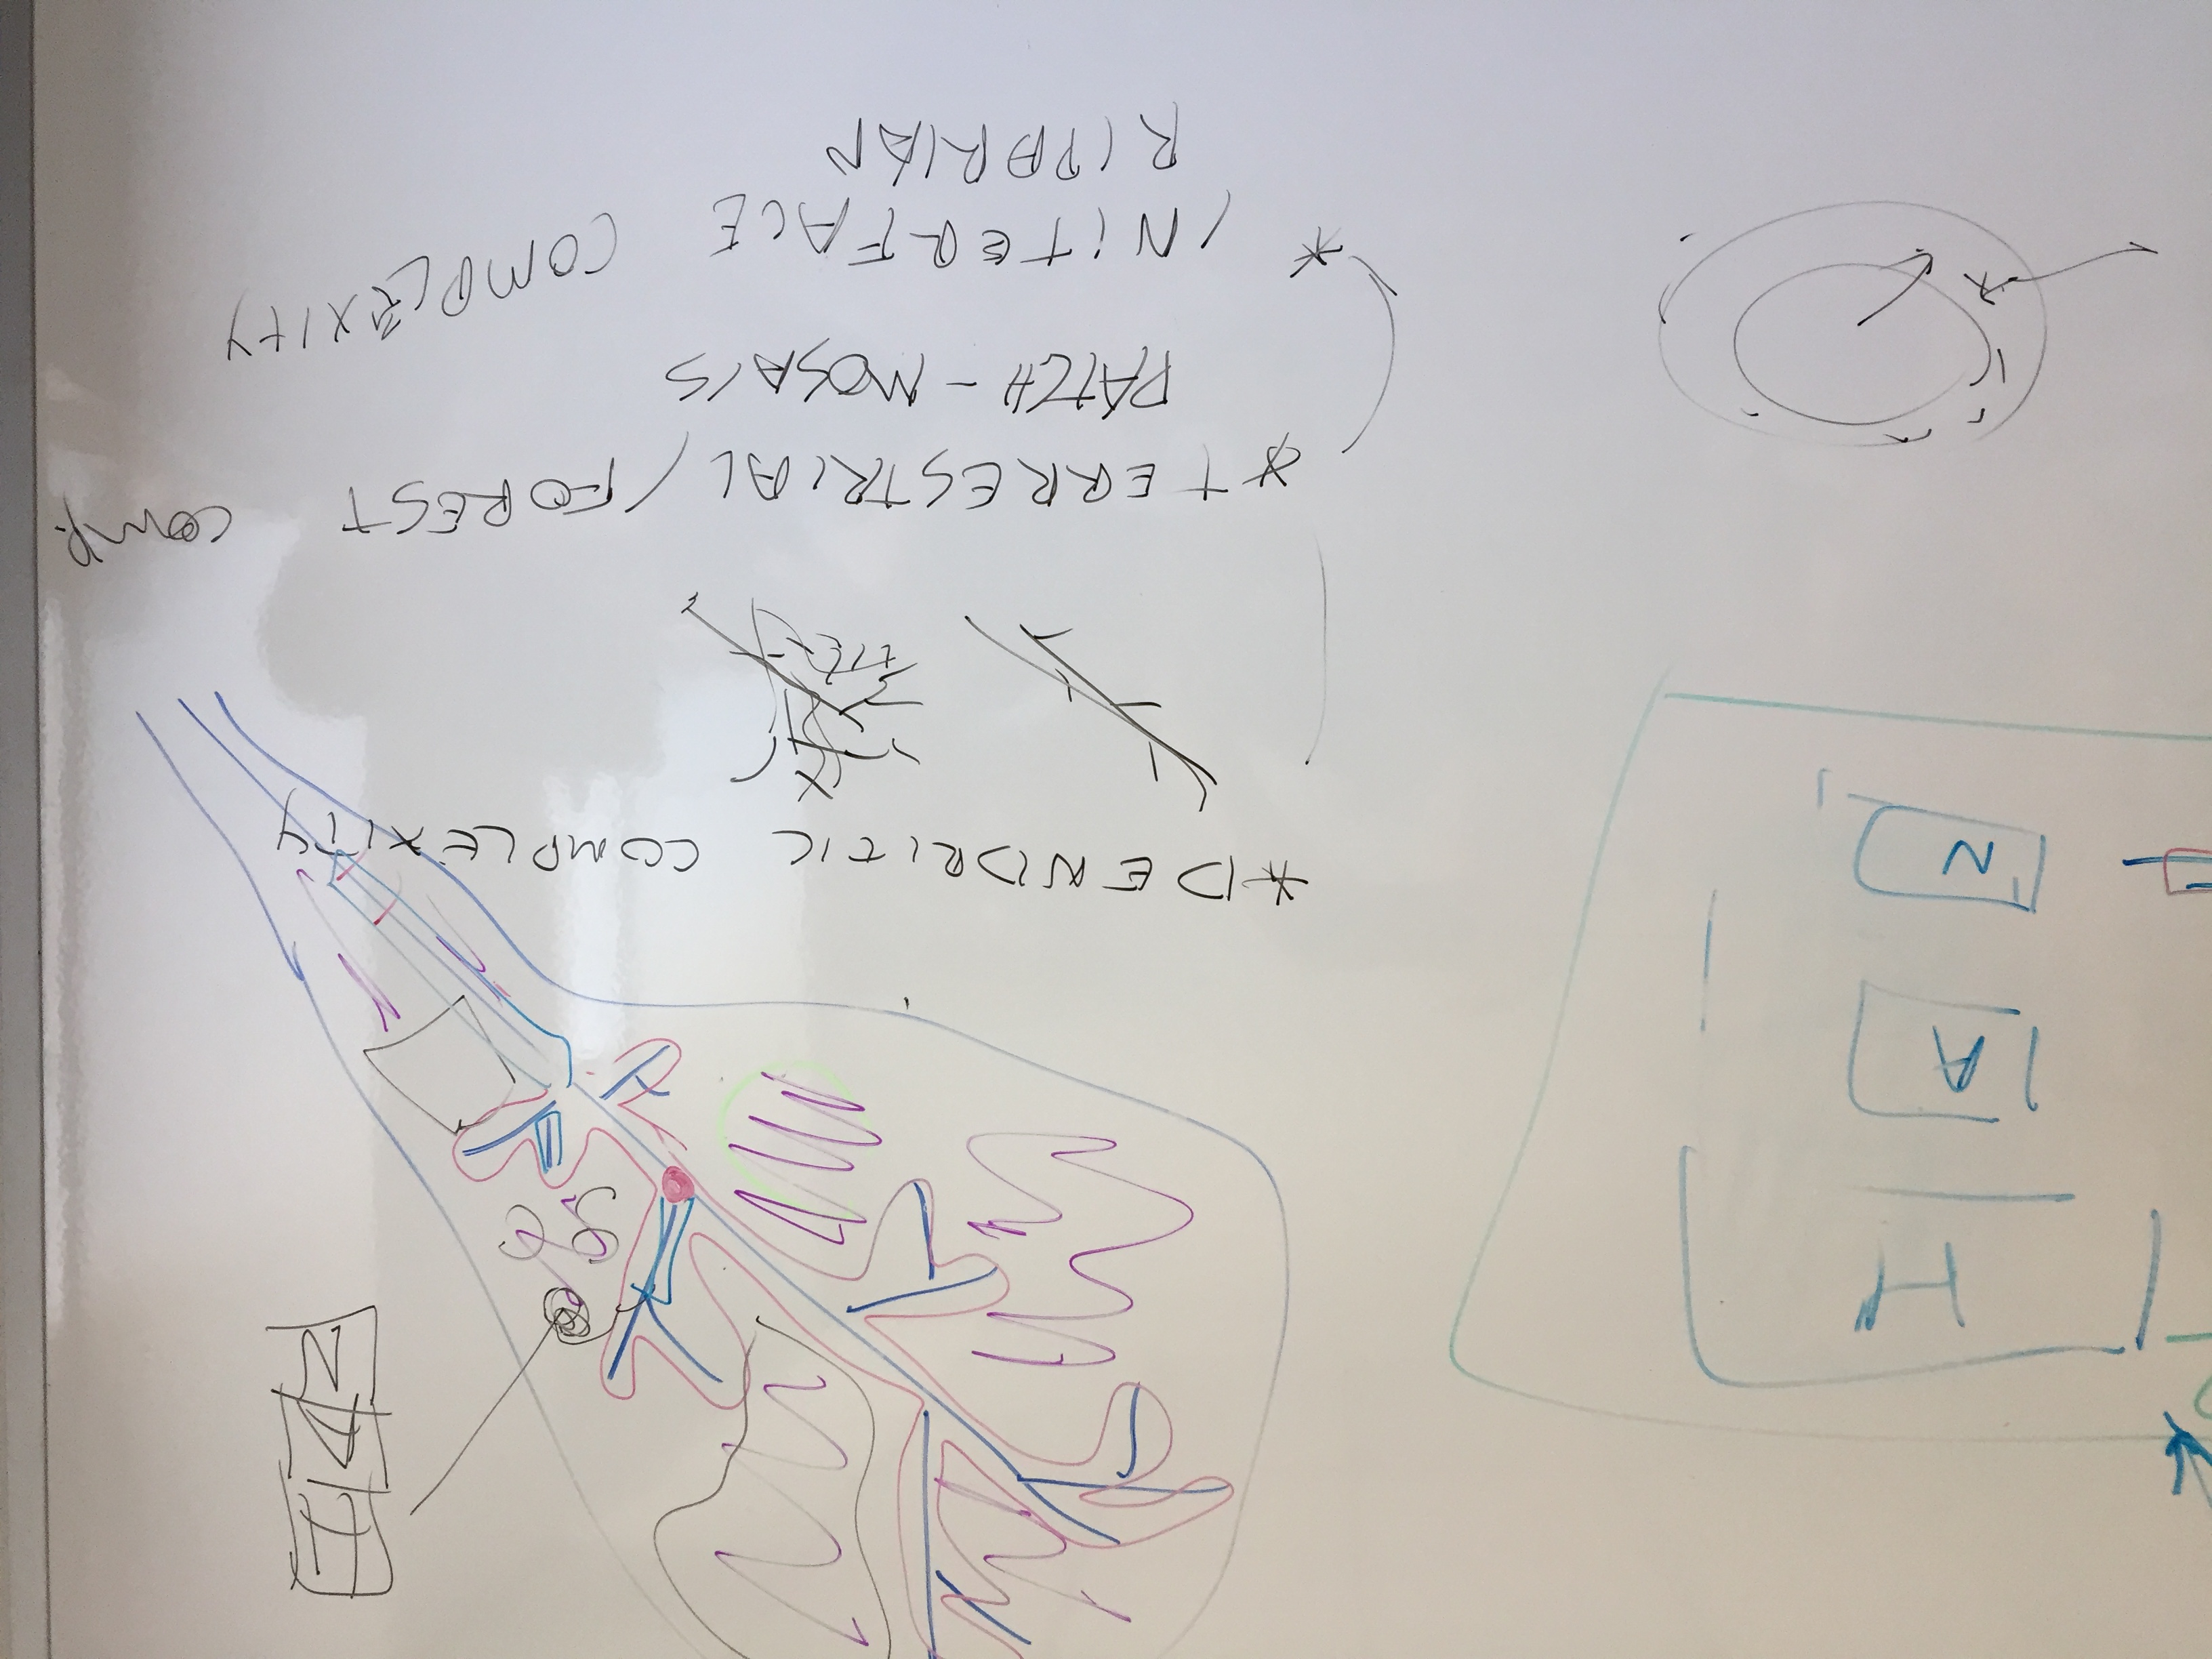 H
A
N
H
A
N
*DENDRITIC COMPLEXITY
*TERRESTRIAL/FOREST COMP.
PATCH-MOSAICS
* INTERFACE COMPLEXITY
RIPARIAN